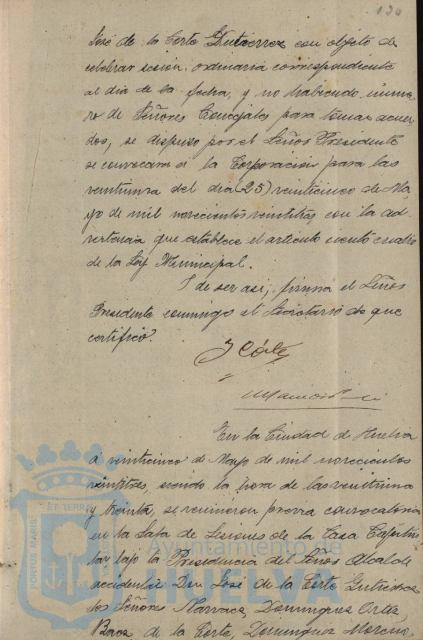 130
José de la Corte Gutiérrez con objeto de
celebrar sesion ordinaria correspondiente
al dia de la fecha, y no habiendo núme-
ro de Señores Concejales para tomar acuer-
dos, se dispuso por el Señor Presidente
se convocara a la Corporacion para las
veintiuna del dia (25) veinticinco de Ma-
yo de mil novecientos veintitres con la ad-
vertencia que establece el articulo ciento cuatro
de la Ley Municipal.
Y de ser asi, firma el Señor
Presidente conmigo el Secretario de que
certifico.
J Corte
En la Ciudad de Huelva
á veinticinco de Mayo de mil novecientos
veintitres, siendo la hora de las veintiuna
y treinta, se reunieron previa convocatoria
en la Sala de Sesiones de la Casa Capitu-
lar bajo la Presidencia del Señor Alcalde
accidental Don José de la Corte Gutierrez
los Señores Narvaez, Dominguez Ortiz
de la Corte, Dominguez Moreno
PORTUS MARIS ET TERRE
Ayuntamiento de
HUELVA